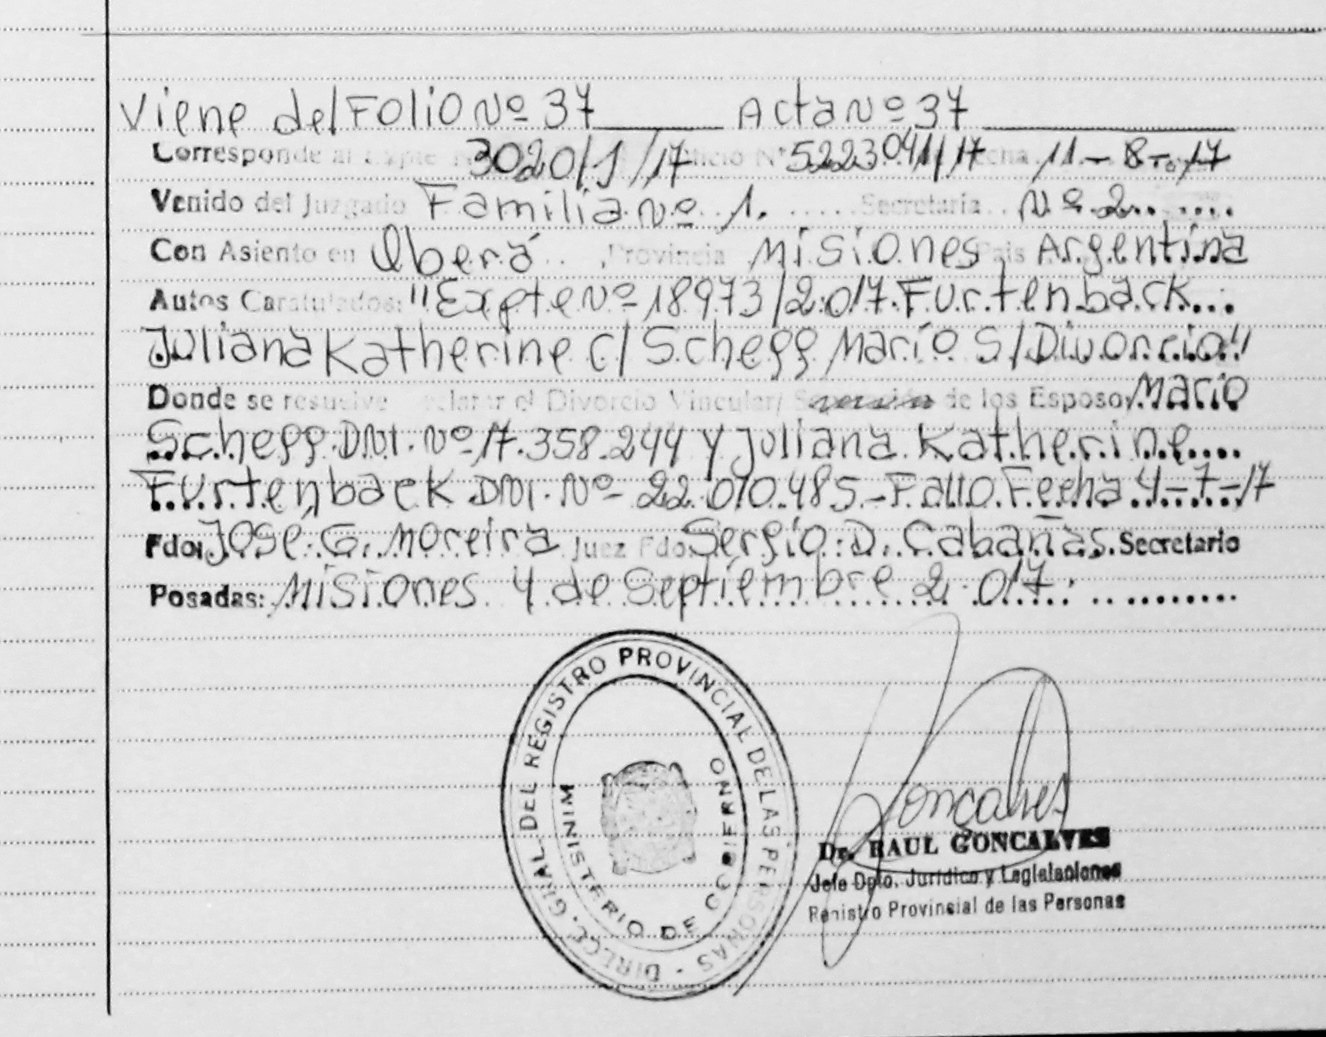 Viene del Folio Nº 37 Acta Nº 37
Corresponde al Expte 3020/1/17 Oficio Nº 5223041/17 Fecha 11-8-17
Venido del Juzgado Familia Nº 1. Secretaria Nº 2
Con Asiento en Oberá Provincia Misiones Pais Argentina
Autos Caratulados: "Expte Nº 18973/2.017. Furtenback
Juliana Katherine C/ Scheff Mario S/Divorcio"
Donde se resuelve declarar el Divorcio Vincular/ de los Esposos Mario
Scheff DNI. Nº 17.358.244 y Juliana Katherine
Furtenback DNI. Nº 22.010.485 - Fallo Fecha 4-7-17
Fdo: José G. Moreira Juez Fdo Sergio D. Cabañas. Secretario
Posadas: Misiones 4 de Septiembre 2.017.
DIRECC. GRAL. DEL REGISTRO PROVINCIAL DE LAS PERSONAS
MINISTERIO DE GOBIERNO
Goncalves
Dr. RAUL GONCALVES
Jefe Dpto. Jurídico y Legislaciones
Registro Provincial de las Personas